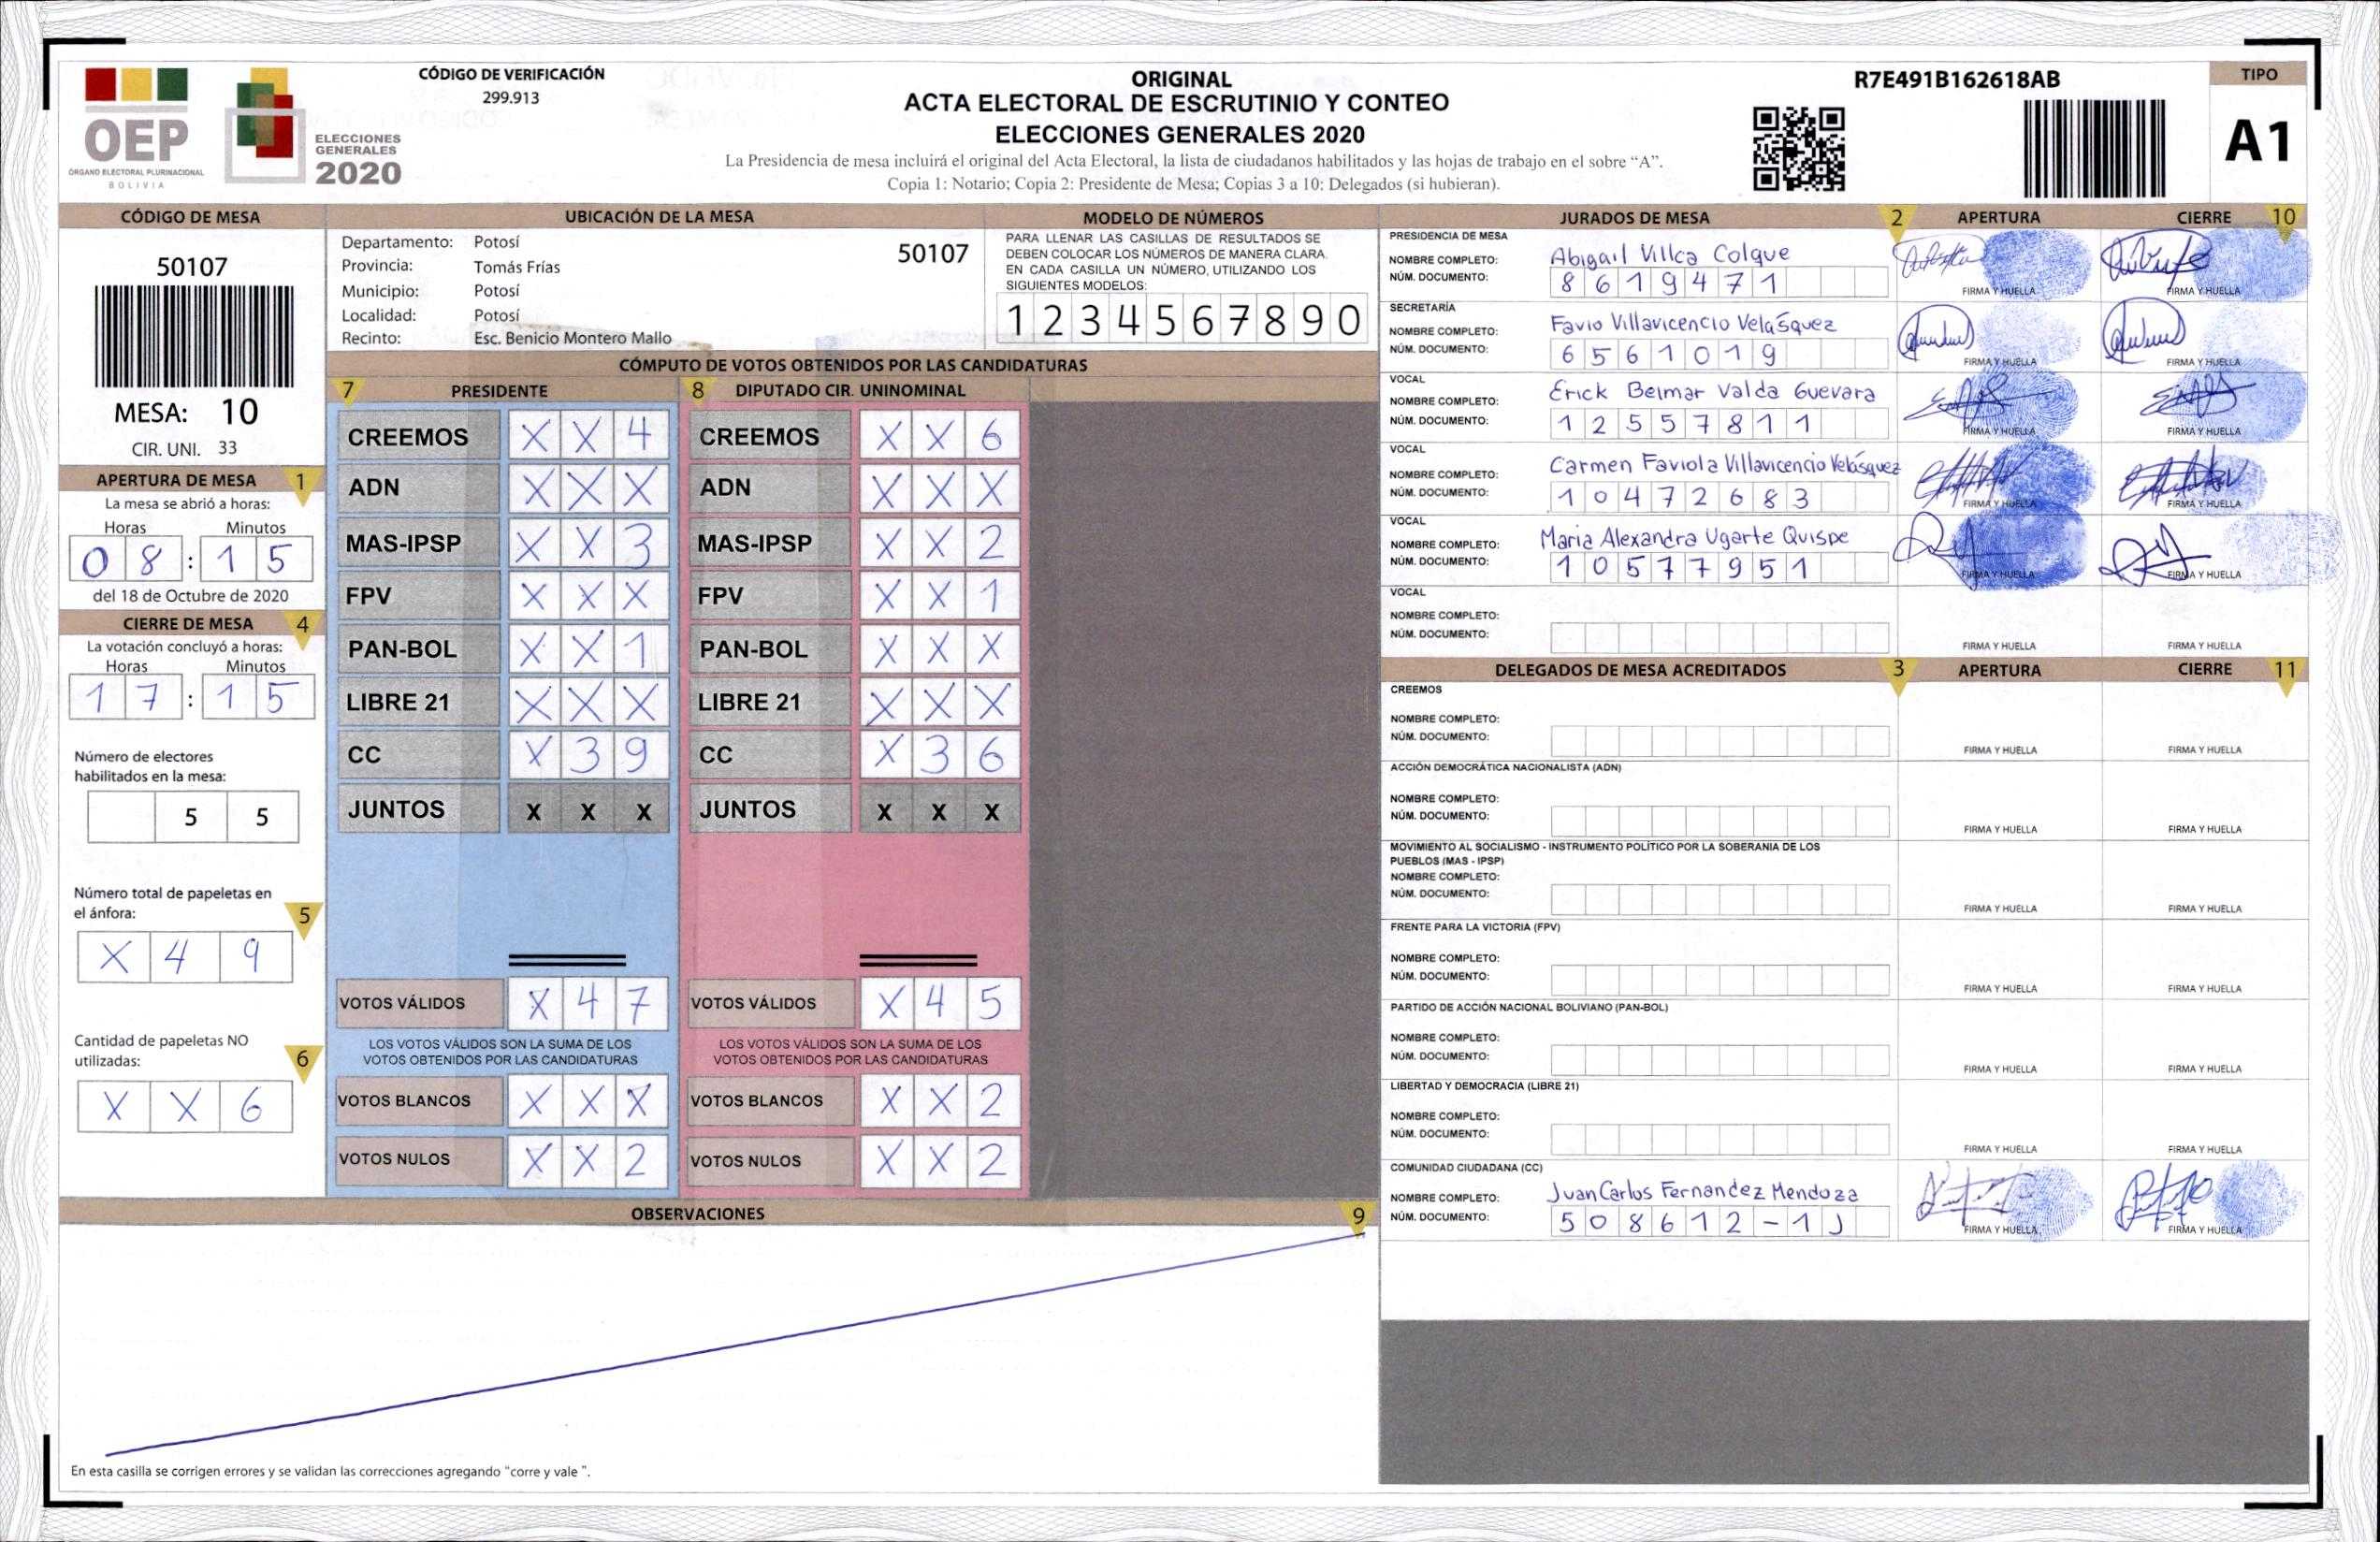 OEP
ÓRGANO ELECTORAL PLURINACIONAL
BOLIVIA
ELECCIONES
GENERALES
2020
CÓDIGO DE VERIFICACIÓN
299.913
ORIGINAL
ACTA ELECTORAL DE ESCRUTINIO Y CONTEO
ELECCIONES GENERALES 2020
La Presidencia de mesa incluirá el original del Acta Electoral, la lista de ciudadanos habilitados y las hojas de trabajo en el sobre “A”.
Copia 1: Notario; Copia 2: Presidente de Mesa; Copias 3 a 10: Delegados (si hubieran).
R7E491B162618AB
TIPO
A1
CÓDIGO DE MESA
50107
MESA: 10
CIR. UNI. 33
APERTURA DE MESA 1
La mesa se abrió a horas:
Horas Minutos
0 8 : 1 5
del 18 de Octubre de 2020
CIERRE DE MESA 4
La votación concluyó a horas:
Horas Minutos
1 7 : 1 5
Número de electores
habilitados en la mesa:
5 5
Número total de papeletas en
el ánfora: 5
X 4 9
Cantidad de papeletas NO
utilizadas: 6
X X 6
UBICACIÓN DE LA MESA
Departamento: Potosí 50107
Provincia: Tomás Frías
Municipio: Potosí
Localidad: Potosí
Recinto: Esc. Benicio Montero Mallo
MODELO DE NÚMEROS
PARA LLENAR LAS CASILLAS DE RESULTADOS SE
DEBEN COLOCAR LOS NÚMEROS DE MANERA CLARA.
EN CADA CASILLA UN NÚMERO, UTILIZANDO LOS
SIGUIENTES MODELOS:
1 2 3 4 5 6 7 8 9 0
CÓMPUTO DE VOTOS OBTENIDOS POR LAS CANDIDATURAS
7 PRESIDENTE 8 DIPUTADO CIR. UNINOMINAL
CREEMOS X X 4 CREEMOS X X 6
ADN X X X ADN X X X
MAS-IPSP X X 3 MAS-IPSP X X 2
FPV X X X FPV X X 1
PAN-BOL X X 1 PAN-BOL X X X
LIBRE 21 X X X LIBRE 21 X X X
CC X 3 9 CC X 3 6
JUNTOS X X X JUNTOS X X X
VOTOS VÁLIDOS X 4 7 VOTOS VÁLIDOS X 4 5
LOS VOTOS VÁLIDOS SON LA SUMA DE LOS LOS VOTOS VÁLIDOS SON LA SUMA DE LOS
VOTOS OBTENIDOS POR LAS CANDIDATURAS VOTOS OBTENIDOS POR LAS CANDIDATURAS
VOTOS BLANCOS X X X VOTOS BLANCOS X X 2
VOTOS NULOS X X 2 VOTOS NULOS X X 2
OBSERVACIONES 9
En esta casilla se corrigen errores y se validan las correcciones agregando “corre y vale ”.
JURADOS DE MESA 2 APERTURA CIERRE 10
PRESIDENCIA DE MESA
NOMBRE COMPLETO: Abigail Villca Colque
NÚM. DOCUMENTO: 8 6 1 9 4 7 1
FIRMA Y HUELLA FIRMA Y HUELLA
SECRETARÍA
NOMBRE COMPLETO: Favio Villavicencio Velásquez
NÚM. DOCUMENTO: 6 5 6 1 0 1 9
FIRMA Y HUELLA FIRMA Y HUELLA
VOCAL
NOMBRE COMPLETO: Erick Beimar Valda Guevara
NÚM. DOCUMENTO: 1 2 5 5 7 8 1 1
FIRMA Y HUELLA FIRMA Y HUELLA
VOCAL
NOMBRE COMPLETO: Carmen Faviola Villavicencio Velásquez
NÚM. DOCUMENTO: 1 0 4 7 2 6 8 3
FIRMA Y HUELLA FIRMA Y HUELLA
VOCAL
NOMBRE COMPLETO: Maria Alexandra Ugarte Quispe
NÚM. DOCUMENTO: 1 0 5 7 7 9 5 1
FIRMA Y HUELLA FIRMA Y HUELLA
VOCAL
NOMBRE COMPLETO:
NÚM. DOCUMENTO:
FIRMA Y HUELLA FIRMA Y HUELLA
DELEGADOS DE MESA ACREDITADOS 3 APERTURA CIERRE 11
CREEMOS
NOMBRE COMPLETO:
NÚM. DOCUMENTO:
FIRMA Y HUELLA FIRMA Y HUELLA
ACCIÓN DEMOCRÁTICA NACIONALISTA (ADN)
NOMBRE COMPLETO:
NÚM. DOCUMENTO:
FIRMA Y HUELLA FIRMA Y HUELLA
MOVIMIENTO AL SOCIALISMO - INSTRUMENTO POLÍTICO POR LA SOBERANIA DE LOS
PUEBLOS (MAS - IPSP)
NOMBRE COMPLETO:
NÚM. DOCUMENTO:
FIRMA Y HUELLA FIRMA Y HUELLA
FRENTE PARA LA VICTORIA (FPV)
NOMBRE COMPLETO:
NÚM. DOCUMENTO:
FIRMA Y HUELLA FIRMA Y HUELLA
PARTIDO DE ACCIÓN NACIONAL BOLIVIANO (PAN-BOL)
NOMBRE COMPLETO:
NÚM. DOCUMENTO:
FIRMA Y HUELLA FIRMA Y HUELLA
LIBERTAD Y DEMOCRACIA (LIBRE 21)
NOMBRE COMPLETO:
NÚM. DOCUMENTO:
FIRMA Y HUELLA FIRMA Y HUELLA
COMUNIDAD CIUDADANA (CC)
NOMBRE COMPLETO: Juan Carlos Fernandez Mendoza
NÚM. DOCUMENTO: 5 0 8 6 1 2 - 1 J
FIRMA Y HUELLA FIRMA Y HUELLA